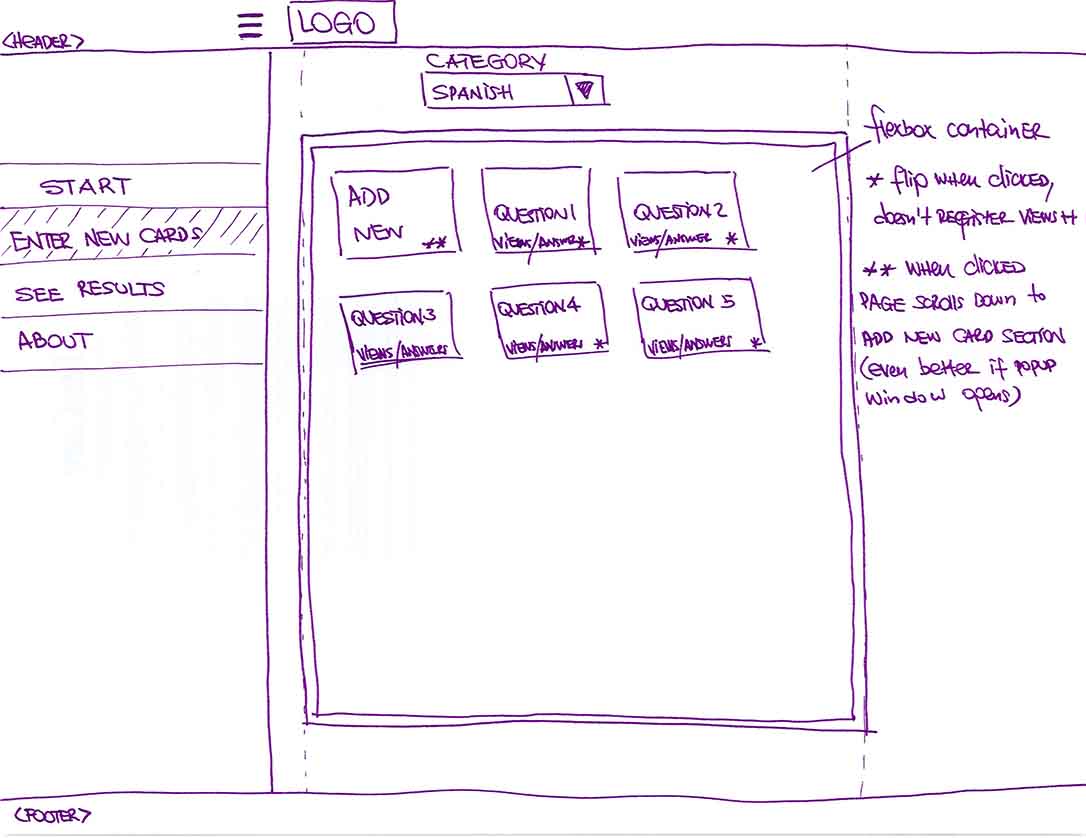 <HEADER>
LOGO
CATEGORY
SPANISH
START
ENTER NEW CARDS
SEE RESULTS
ABOUT
ADD
NEW
**
QUESTION 1
VIEWS/ANSWER*
QUESTION 2
VIEWS/ANSWER *
QUESTION 3
VIEWS/ANSWERS
QUESTION 4
VIEWS/ANSWERS *
QUESTION 5
VIEWS/ANSWERS *
flexbox container
* flip when clicked,
doesn't REGISTER VIEWS++
** WHEN CLICKED
PAGE SCROLLS DOWN to
ADD NEW CARD SECTION
(even better if POPUP
Window opens)
<FOOTER>